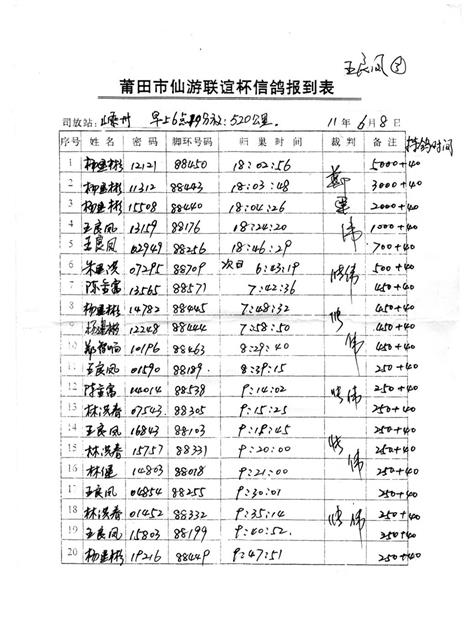 王良凤
莆田市仙游联谊杯信鸽报到表
司放站: 嵊州 早上6点 分放: 520公里. 11年6月8日
序号 姓名 密码 脚环号码 归巢时间 裁判 备注 持鸽时间
1 杨建彬 12121 88450 18:02:56 5000+40
2 杨建彬 11312 88443 18:03:48 郑 3000+40
3 杨建彬 15508 88440 18:04:26 2000+40
4 王良凤 13159 88176 18:24:20 伟 1000+40
5 王良凤 02949 88256 18:46:29 700+40
6 朱 07295 88709 次日 6:43:19 伟 500+40
7 陈富 13565 88571 7:42:36 450+40
8 杨建彬 14782 88445 7:48:32 450+40
9 杨建彬 12248 88444 7:58:50 伟 450+40
10 郑 10196 88463 8:29:40 450+40
11 王良凤 01590 88189 8:39:15 250+40
12 陈富 04014 88538 9:14:02 伟 250+40
13 林洪春 07543 88305 9:15:25 250+40
14 王良凤 16843 88103 9:18:45 250+40
15 林洪春 15757 88331 9:20:00 250+40
16 林建 14803 88018 9:21:00 伟 250+40
17 王良凤 04854 88255 9:30:01 250+40
18 林洪春 01452 88332 9:35:14 伟 250+40
19 王良凤 15803 88199 9:40:52 250+40
20 杨建彬 19216 88449 9:47:51 250+40